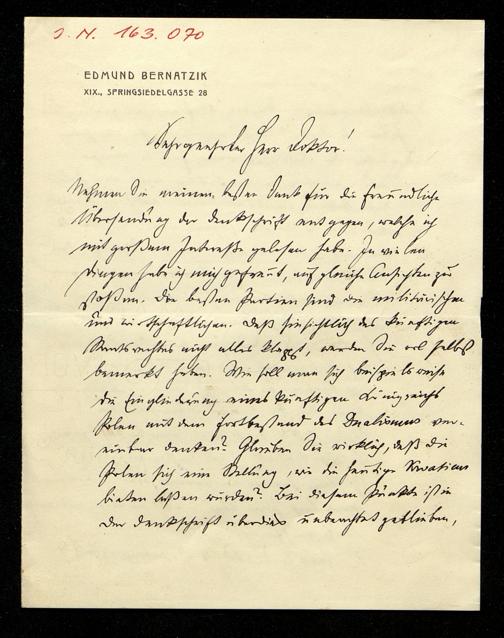 J. N. 163.070
EDMUND BERNATZIK
XIX., SPRINGSIEDELGASSE 28
Sehr geehrter Herr Doktor!
Nehmen Sie meinen besten Dank für die freundliche
Übersendung der Denkschrift entgegen, welche ich
mit großem Interesse gelesen habe. In vielen
Dingen habe ich mich gefreut, auf gleiche Ansichten zu
stoßen. Die besten Partien sind die militärischen
und wirtschaftlichen. Daß hinsichtlich des künftigen
Staatsrechtes nicht alles klappt, werden Sie wol selbst
bemerkt haben. Wie soll man sich beispielsweise
die Eingliederung eines künftigen Königreichs
Polen mit dem Fortbestand des Dualismus ver-
einbar denken? Glauben Sie wirklich, daß die
Polen sich eine Stellung, wie die heutige Kroatiens
bieten laßen würden? Bei diesem Punkte ist in
der Denkschrift überdies unbeachtet geblieben,